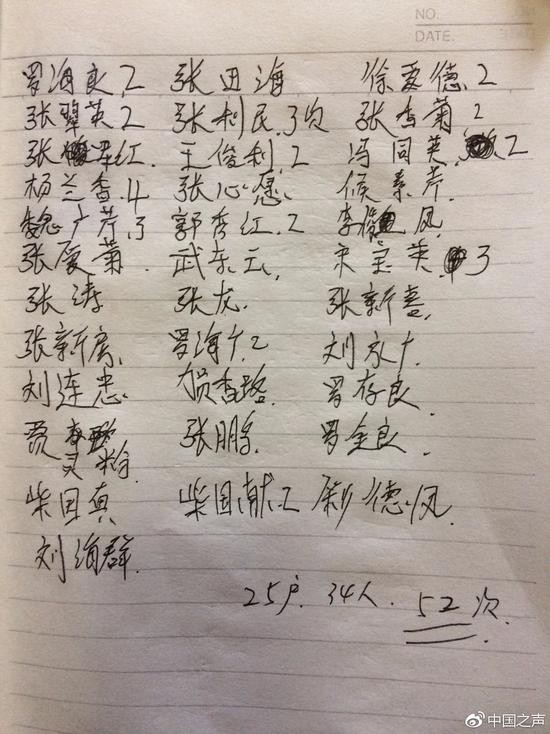 NO.
DATE.
罗海良.2 张田海 徐爱德.2
张翠英2 张利民.3次 张香菊2
张红. 王俊利.2 冯同英.2
杨兰香.4 张心愿. 候素芹.
魏广芹.3 郭秀红.2 李凤.
张厦菊. 武东云. 宋宝英3
张涛 张龙. 张新喜.
张新房. 罗海个.2 刘永个.
刘连忠. 贺香路. 罗存良.
贾 张鹏. 罗金良.
灵粉.
柴国真 柴国献.2 德凤.
刘海群.
25户. 34人. 52次.
中国之声